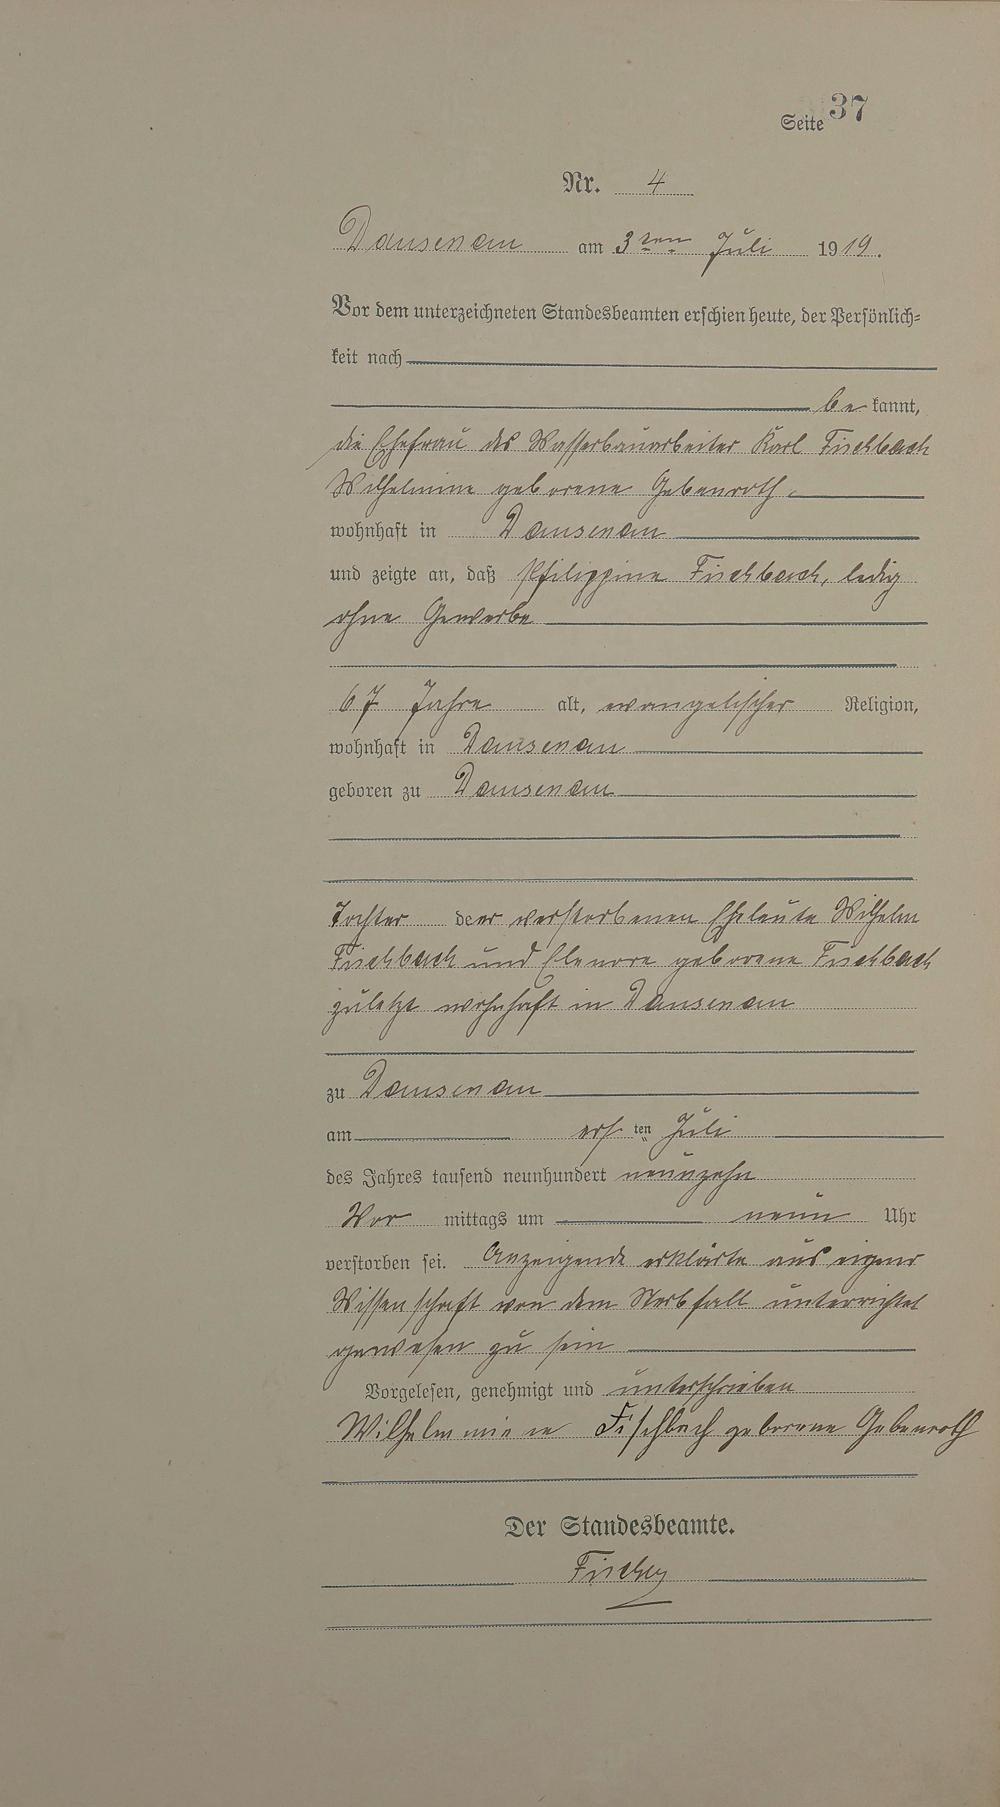 Seite 37
Nr. 4
Dausenau am 3ten Juli 1919.
Vor dem unterzeichneten Standesbeamten erschien heute, der Persönlich-
keit nach
be kannt,
die Ehefrau des Wasserbauarbeiter Karl Fischbach
Wilhelmine geborene Gebenroth,
wohnhaft in Dausenau
und zeigte an, daß Philippine Fischbach, ledig
ohne Gewerbe
67 Jahre alt, evangelischer Religion,
wohnhaft in Dausenau
geboren zu Dausenau
Tochter der verstorbenen Eheleute Wilhelm
Fischbach und Elenore geborene Fischbach
zuletzt wohnhaft in Dausenau
zu Dausenau
am ersten Juli
des Jahres tausend neunhundert neunzehn
Vor mittags um neun Uhr
verstorben sei. Anzeigende erklärte aus eigner
Wissenschaft von dem Sterbfall unterrichtet
gewesen zu sein
Vorgelesen, genehmigt und unterschrieben
Wilhelmmine Fischbach geborene Gebenroth
Der Standesbeamte.